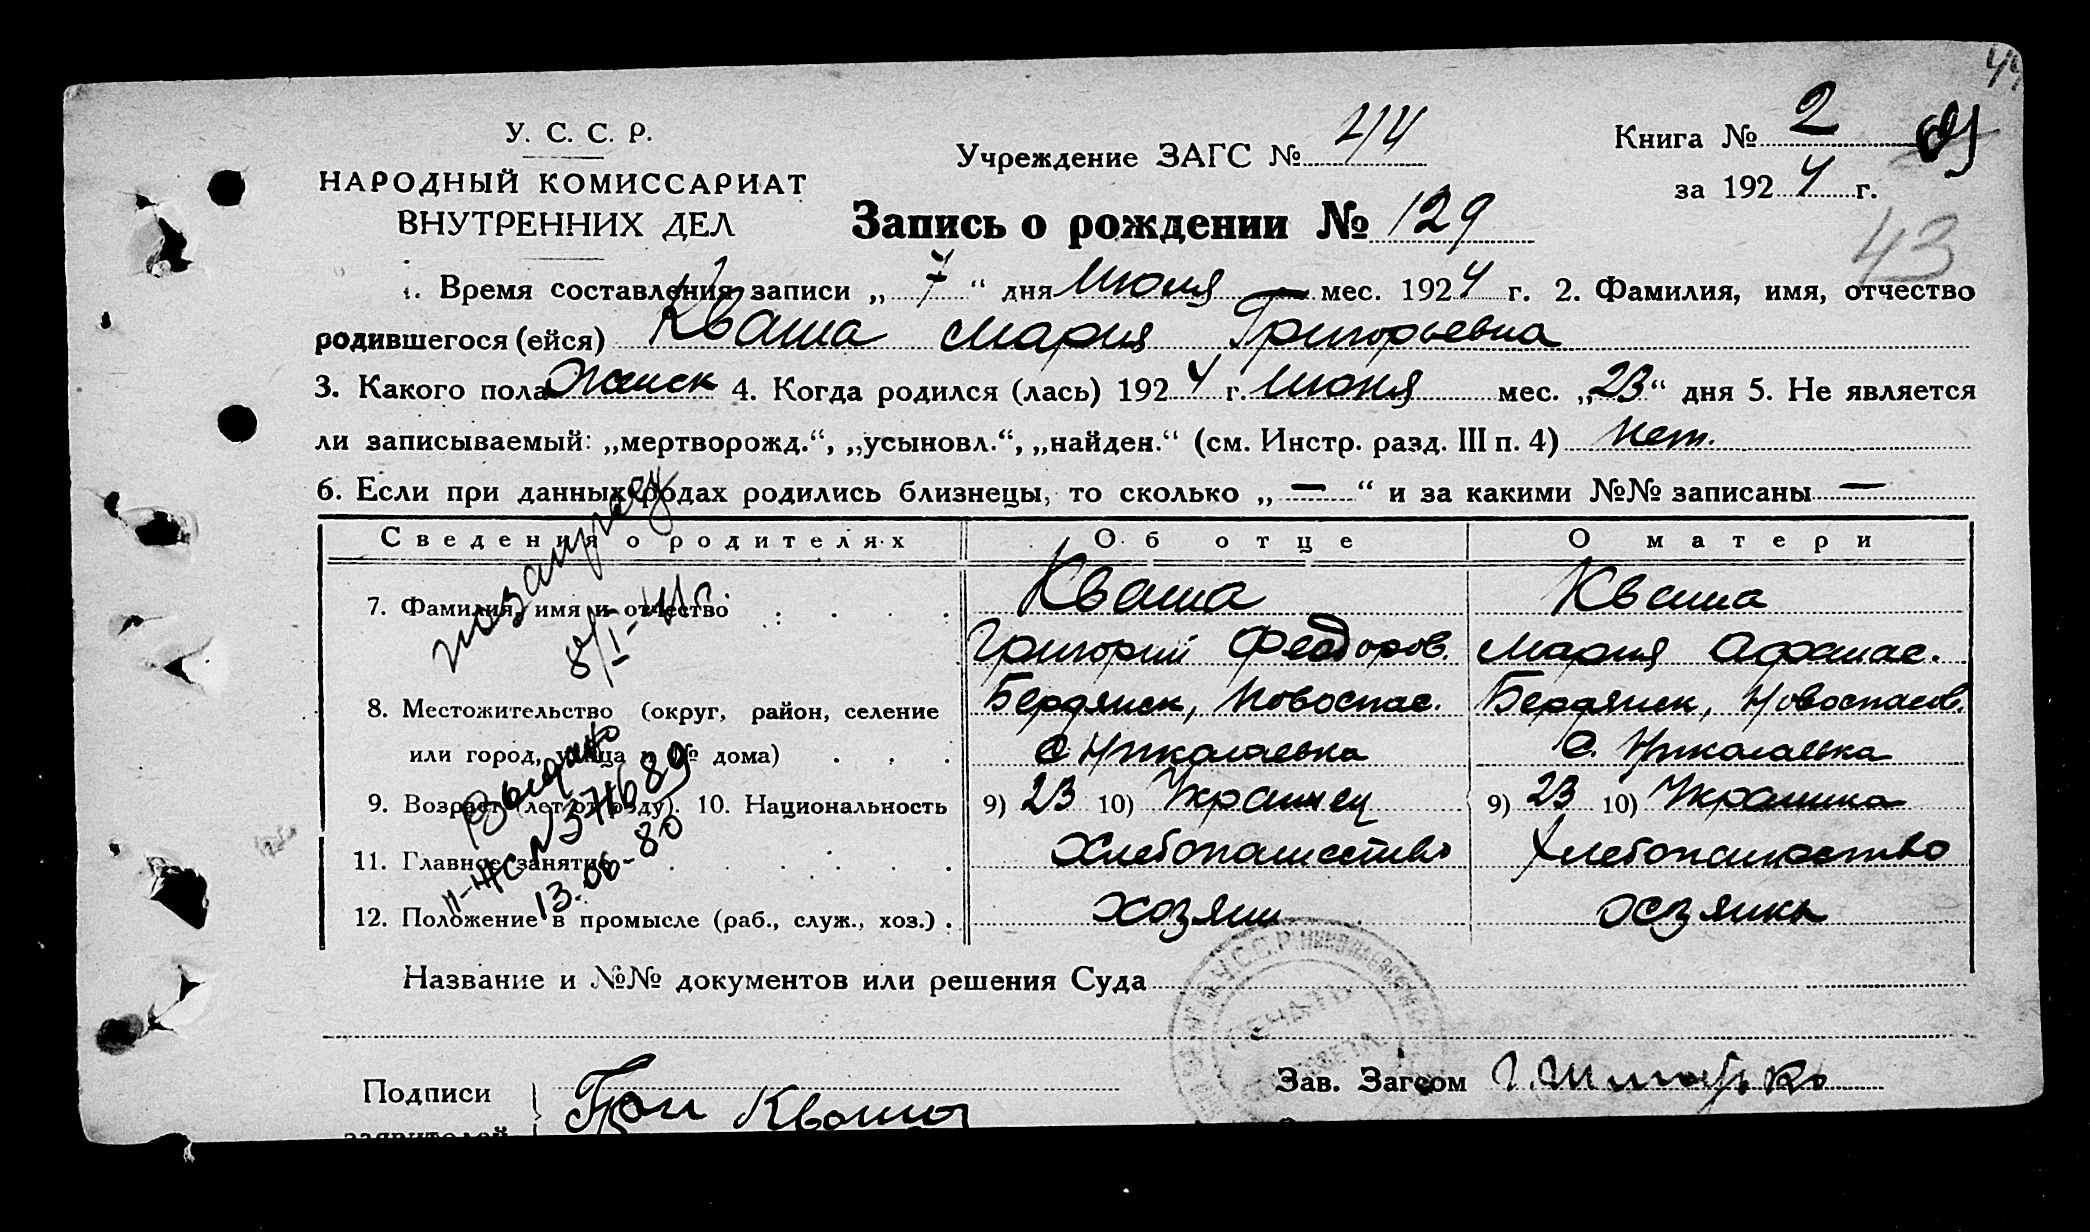 44
У. С. С. Р.
НАРОДНЫЙ КОМИССАРИАТ
ВНУТРЕННИХ ДЕЛ
Учреждение ЗАГС № 44
Книга № 2
за 1924 г.
Запись о рождении № 129
43
1. Время составления записи „ 7 “ дня Июля мес. 1924 г. 2. Фамилия, имя, отчество
родившегося (ейся) Кваша Мария Григорьевна
3. Какого пола Женск 4. Когда родился (лась) 1924 г. Июня мес. „23“ дня 5. Не является
ли записываемый: „мертворожд.“, „усыновл.“, „найден.“ (см. Инстр. разд. III п. 4) Нет.
6. Если при данных родах родились близнецы, то сколько „ — “ и за какими №№ записаны —
Сведения о родителях Об отце О матери
7. Фамилия, имя и отчество Кваша Кваша
Григорий Феодоров. Мария Афанас.
8. Местожительство (округ, район, селение Бердянск, Новоспас. Бердянск, Новоспасов.
или город, улица и № дома) с. Николаевка с. Николаевка
9. Возраст (лет от роду). 10. Национальность 9) 23 10) Украинец 9) 23 10) Украинка
11. Главное занятие Хлебопашество Хлебопашество
12. Положение в промысле (раб., служ., хоз.) хозяин хозяйка
Выдано
13.06-80
Название и №№ документов или решения Суда
ПЕЧАТЬ
Подписи
заявителей
Гри Кваша
Зав. Загсом